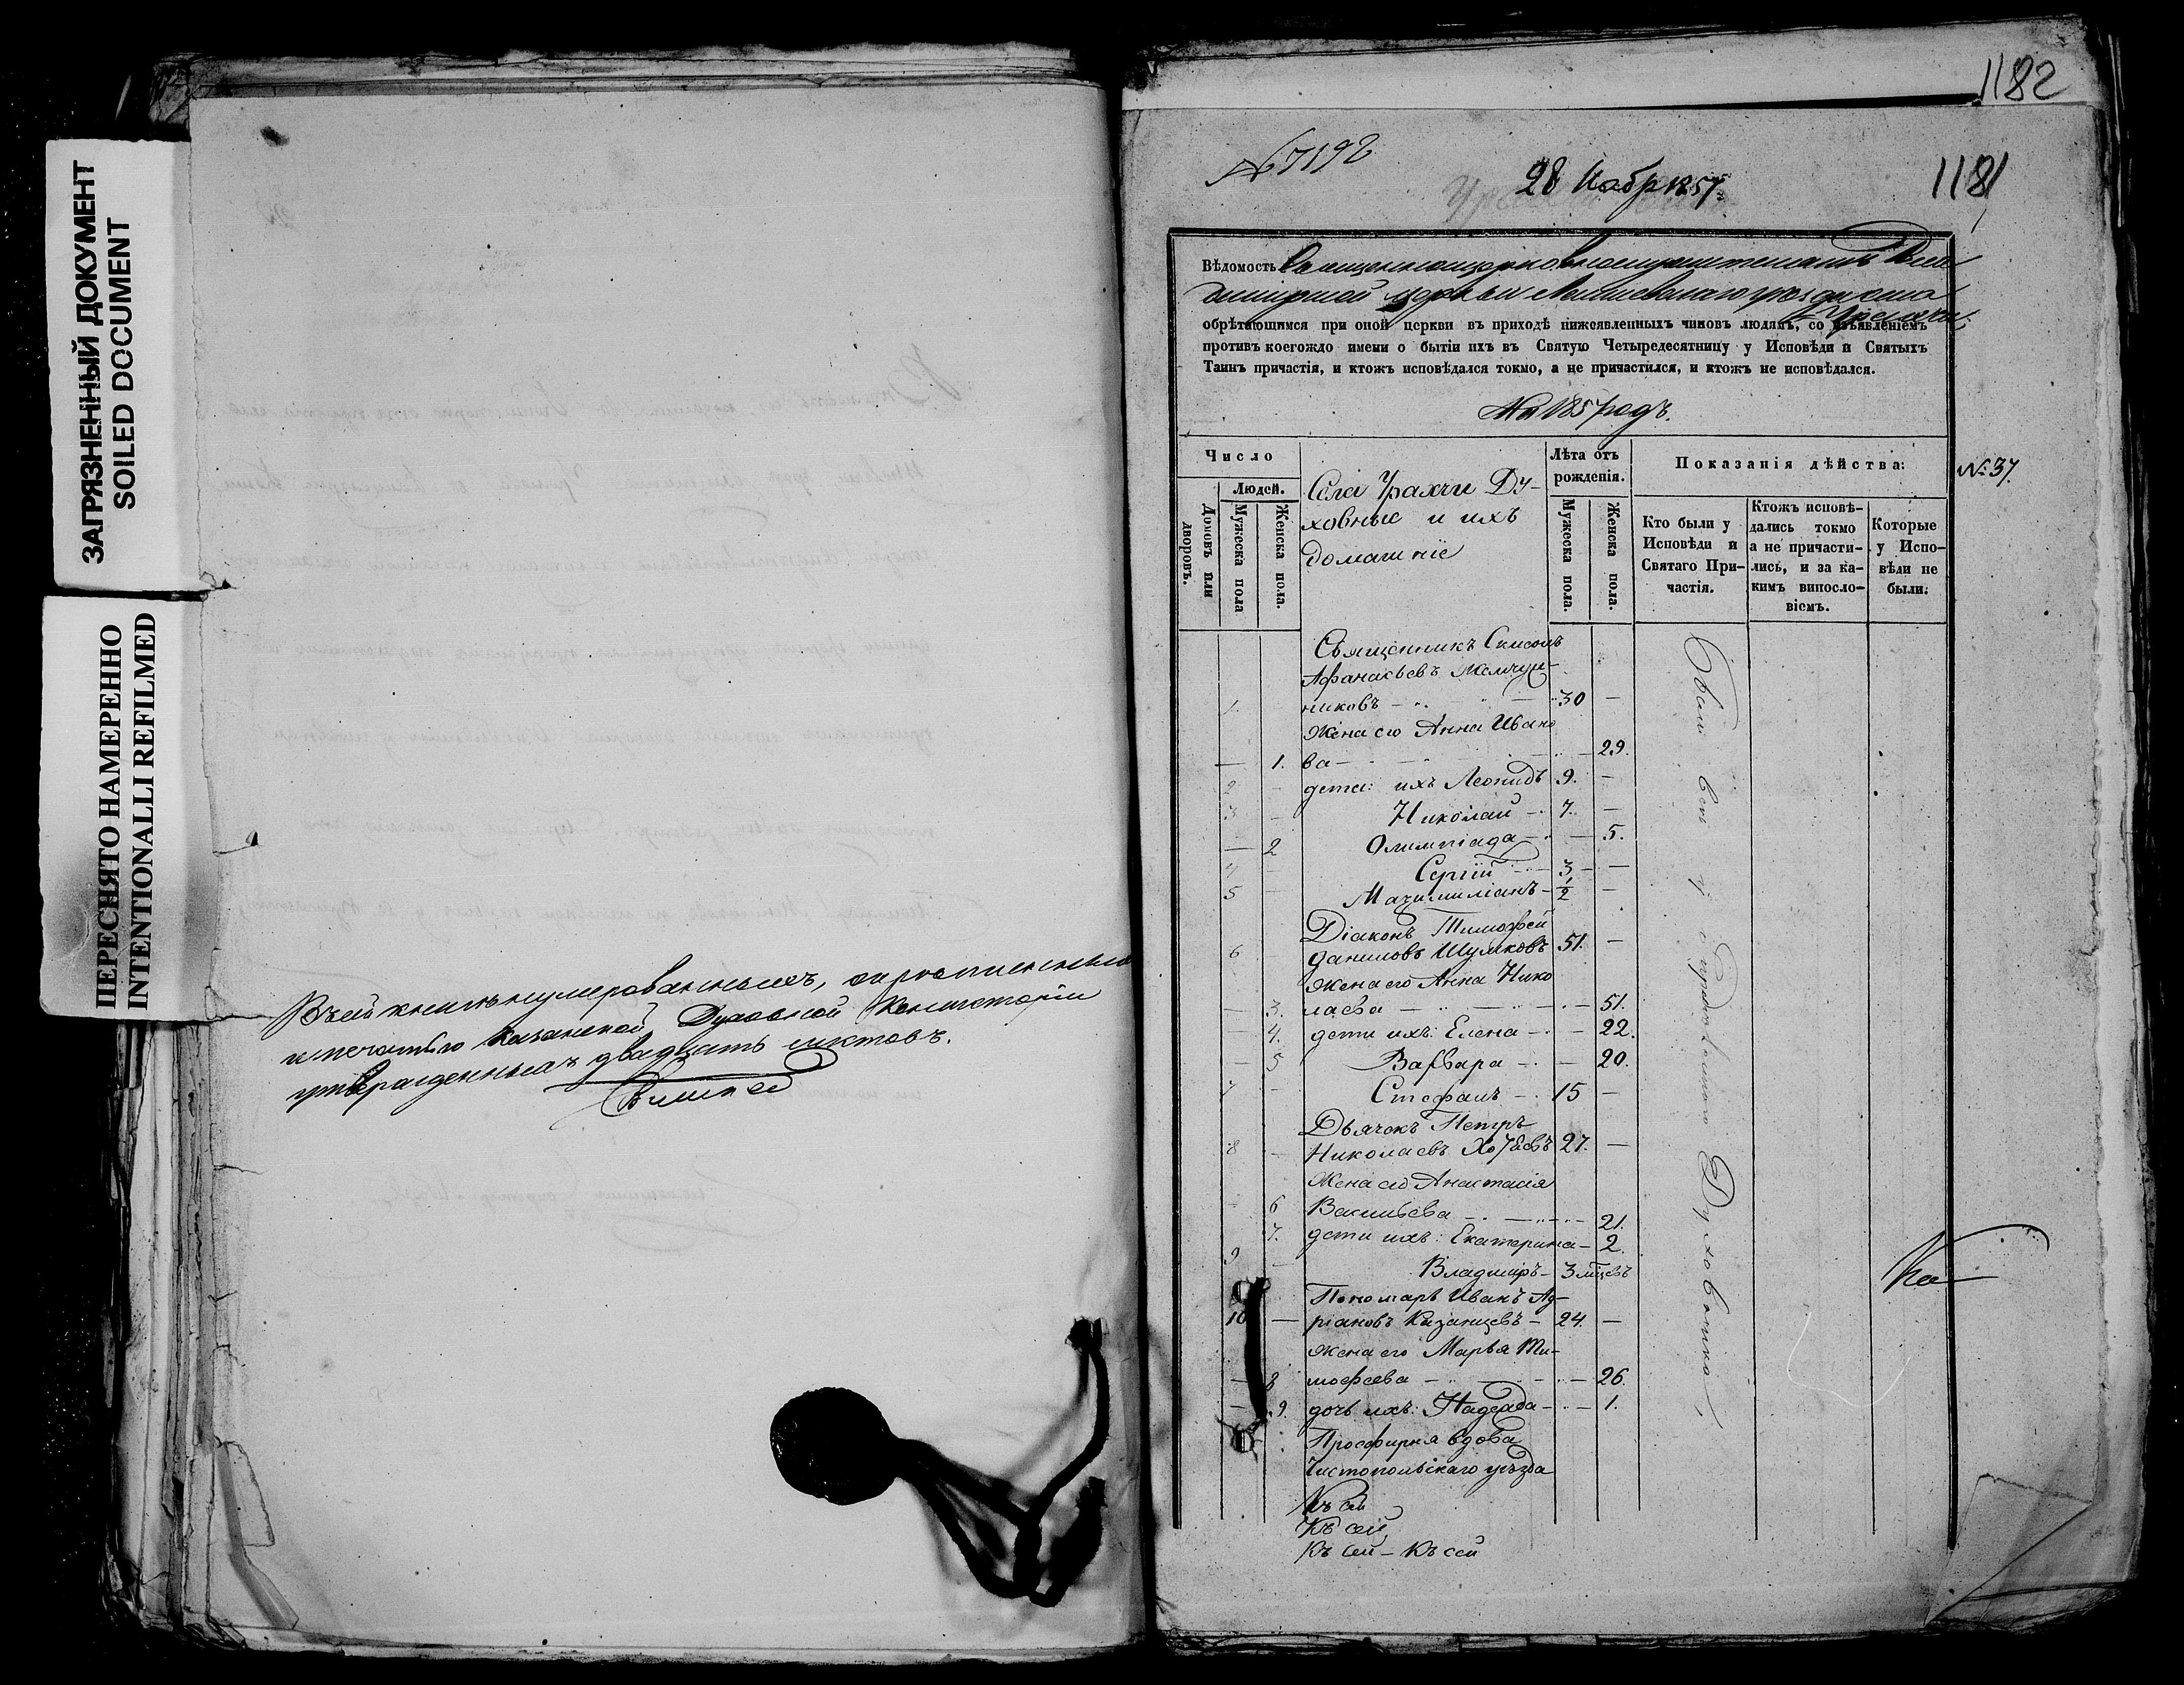 ЗАГРЯЗНЕННЫЙ ДОКУМЕНТ
SOILED DOCUMENT
ПЕРЕСНЯТО НАМЕРЕННО
INTENTIONALLI REFILMED
Въ сей книгѣ нумерованныхъ,
и печатью Казанской Духовной Консисторіи
утвержденныхъ двадцать листовъ.
1182
№ 7192
28 Ноябр 1857
1181
Вѣдомость
церкви Лаишевскаго уѣзда села
Урахчи
обрѣтающимся при оной церкви въ приходѣ нижеявленныхъ чиновъ людямъ, со изъявленіемъ
противъ коегождо имени о бытіи ихъ въ Святую Четыредесятницу у Исповѣди и Святыхъ
Таинъ причастія, и ктожъ исповѣдался токмо, а не причастился, и ктожъ не исповѣдался.
На 1857 годъ.
Число
Людей.
Домовъ или дворовъ.
Мужеска пола
Женска пола.
Села Урахчи Ду-
ховные и ихъ
домашніе
Лѣта отъ рожденія.
Мужеска пола.
Женска пола.
Показанія дѣйства:
Кто были у Исповѣди и Святаго При-частія.
Ктожъ исповѣ-дались токмо а не причасти-лись, и за ка-кимъ винсло-віемъ.
Которые у Испо-вѣди не были.
№ 37.
Священникъ Симеонъ
Афанасьевъ Жемчуж-
1. никовъ 30 —
Жена его Анна Ивано
— 1. ва — 29.
2 — дети: ихъ Леонидъ 9. —
3 — Николай 7. —
— 2 Олимпіада — 5.
4 Сергій 3 —
5 — Максимиліанъ ½ —
Діаконъ Тимофей
6 Даниловъ Шумковъ 51. —
Жена его Анна Нико
— 3. лаева — 51.
— 4. дети ихъ: Елена — 22.
— 5 Варвара — 20.
7 — Стефанъ 15 —
Дьячокъ Петръ
8 — Николаевъ 27. —
Жена его Анастасія
6 Васильева — 21.
7. дети ихъ: Екатерина — 2.
9 — Владиміръ 3 мѣсцевъ
Пономарь Иванъ Ад-
10 — ріановъ Казанцевъ 24. —
жена его Марья Ти-
— 8 мофеева — 26.
— 9. дочь ихъ: Надежда — 1.
Просфирня вдова
Чистопольскаго уѣзда
Къ сей
Къ сей
Къ сей — Къ сей